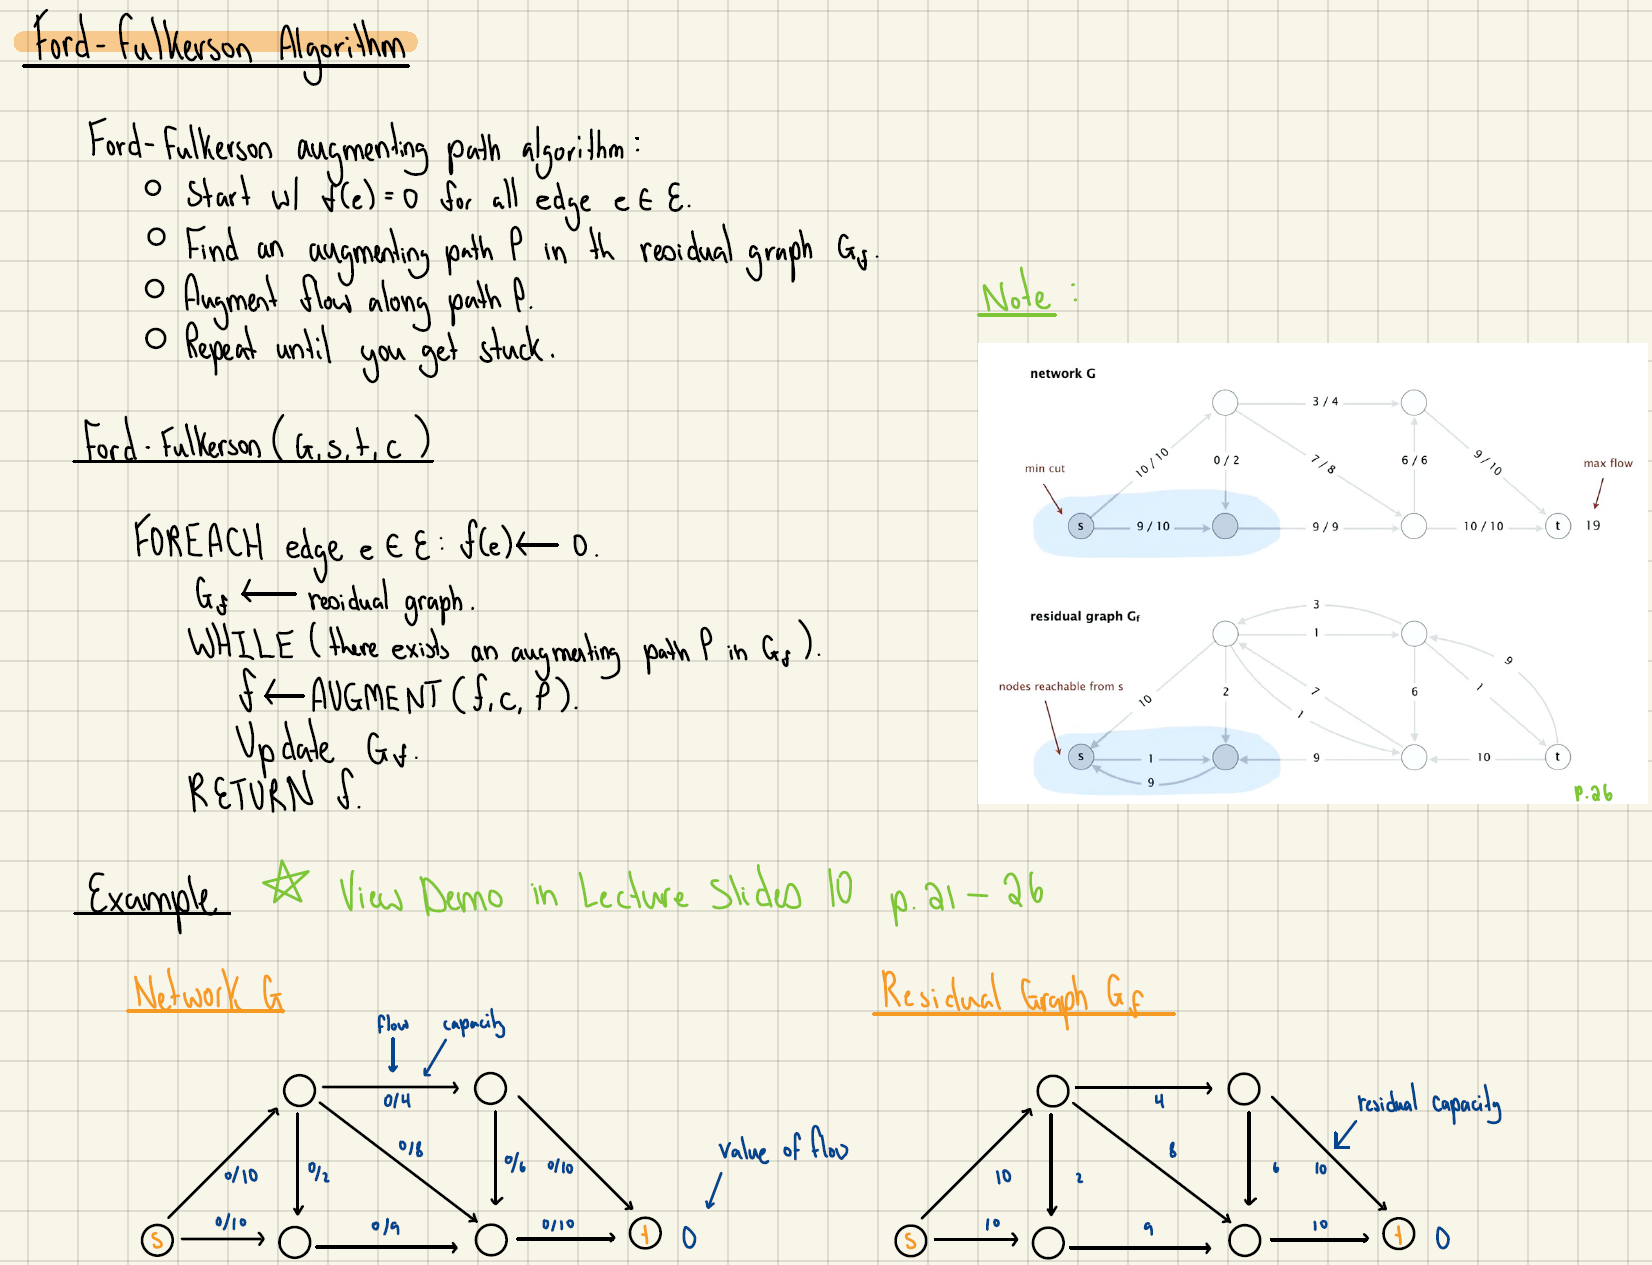 Ford-Fulkerson Algorithm
Ford-Fulkerson augmenting path algorithm:
Start w/ f(e) = 0 for all edge e ∈ E.
Find an augmenting path P in th residual graph Gf.
Augment flow along path P.
Repeat until you get stuck.
Ford-Fulkerson (G, s, t, c)
FOREACH edge e ∈ E: f(e) ← 0.
Gf ← residual graph.
WHILE (there exists an augmenting path P in Gf).
f ← AUGMENT (f, c, P).
Update Gf.
RETURN f.
Note:
network G
3 / 4
10 / 10
0 / 2
7 / 8
6 / 6
9 / 10
min cut
max flow
s
9 / 10
9 / 9
10 / 10
t
19
residual graph Gf
3
1
9
nodes reachable from s
10
2
7
1
6
1
s
1
9
10
t
9
p.26
Example ☆ View Demo in Lecture Slides 10 p.21 - 26
Network G
flow
capacity
0/4
0/10
0/2
0/8
0/6
0/10
value of flow
s
0/10
0/9
0/10
t
0
Residual Graph Gf
4
residual capacity
10
2
8
6
10
s
10
9
10
t
0